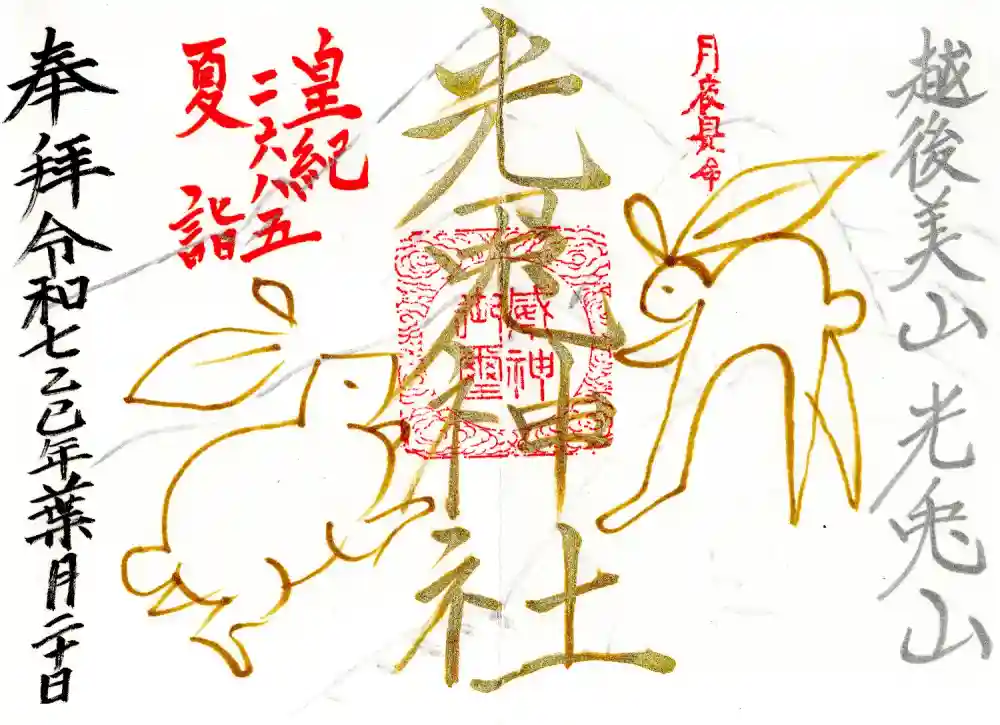 越後美山 光兎山
月夜見命
光兎神社
威神
御璽
皇紀
二六八五
夏詣
奉拝 令和七乙巳年葉月二十日